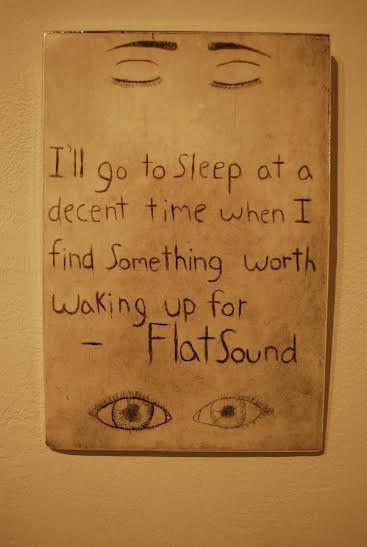 I'll go to Sleep at a
decent time when I
find Something worth
Waking up for
- FlatSound